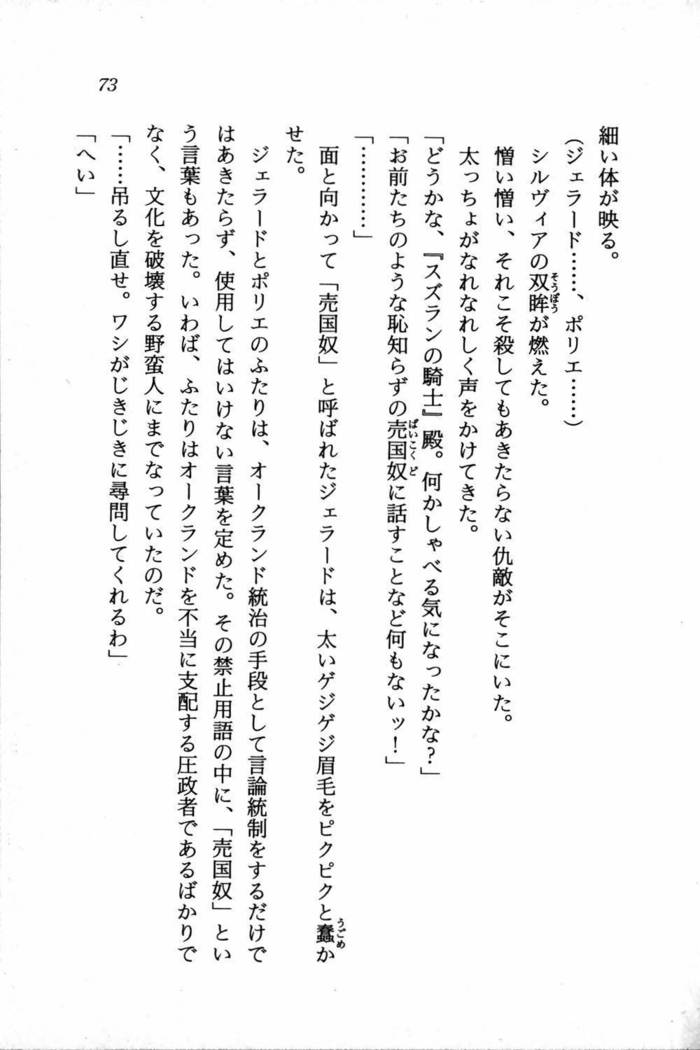 細い体が映る。
（ジェラード……、ポリエ……）
シルヴィアの双眸が燃えた。
憎い憎い、それこそ殺してもあきたらない仇敵がそこにいた。
太っちょがなれなれしく声をかけてきた。
「どうかな、『スズランの騎士』殿。何かしゃべる気になったかな？」
「お前たちのような恥知らずの売国奴に話すことなど何もないッ！」
「…………」
面と向かって「売国奴」と呼ばれたジェラードは、太いゲジゲジ眉毛をピクピクと蠢か
せた。
ジェラードとポリエのふたりは、オークランド統治の手段として言論統制をするだけで
はあきたらず、使用してはいけない言葉を定めた。その禁止用語の中に、「売国奴」とい
う言葉もあった。いわば、ふたりはオークランドを不当に支配する圧政者であるばかりで
なく、文化を破壊する野蛮人にまでなっていたのだ。
「……吊るし直せ。ワシがじきじきに尋問してくれるわ」
「へい」
73